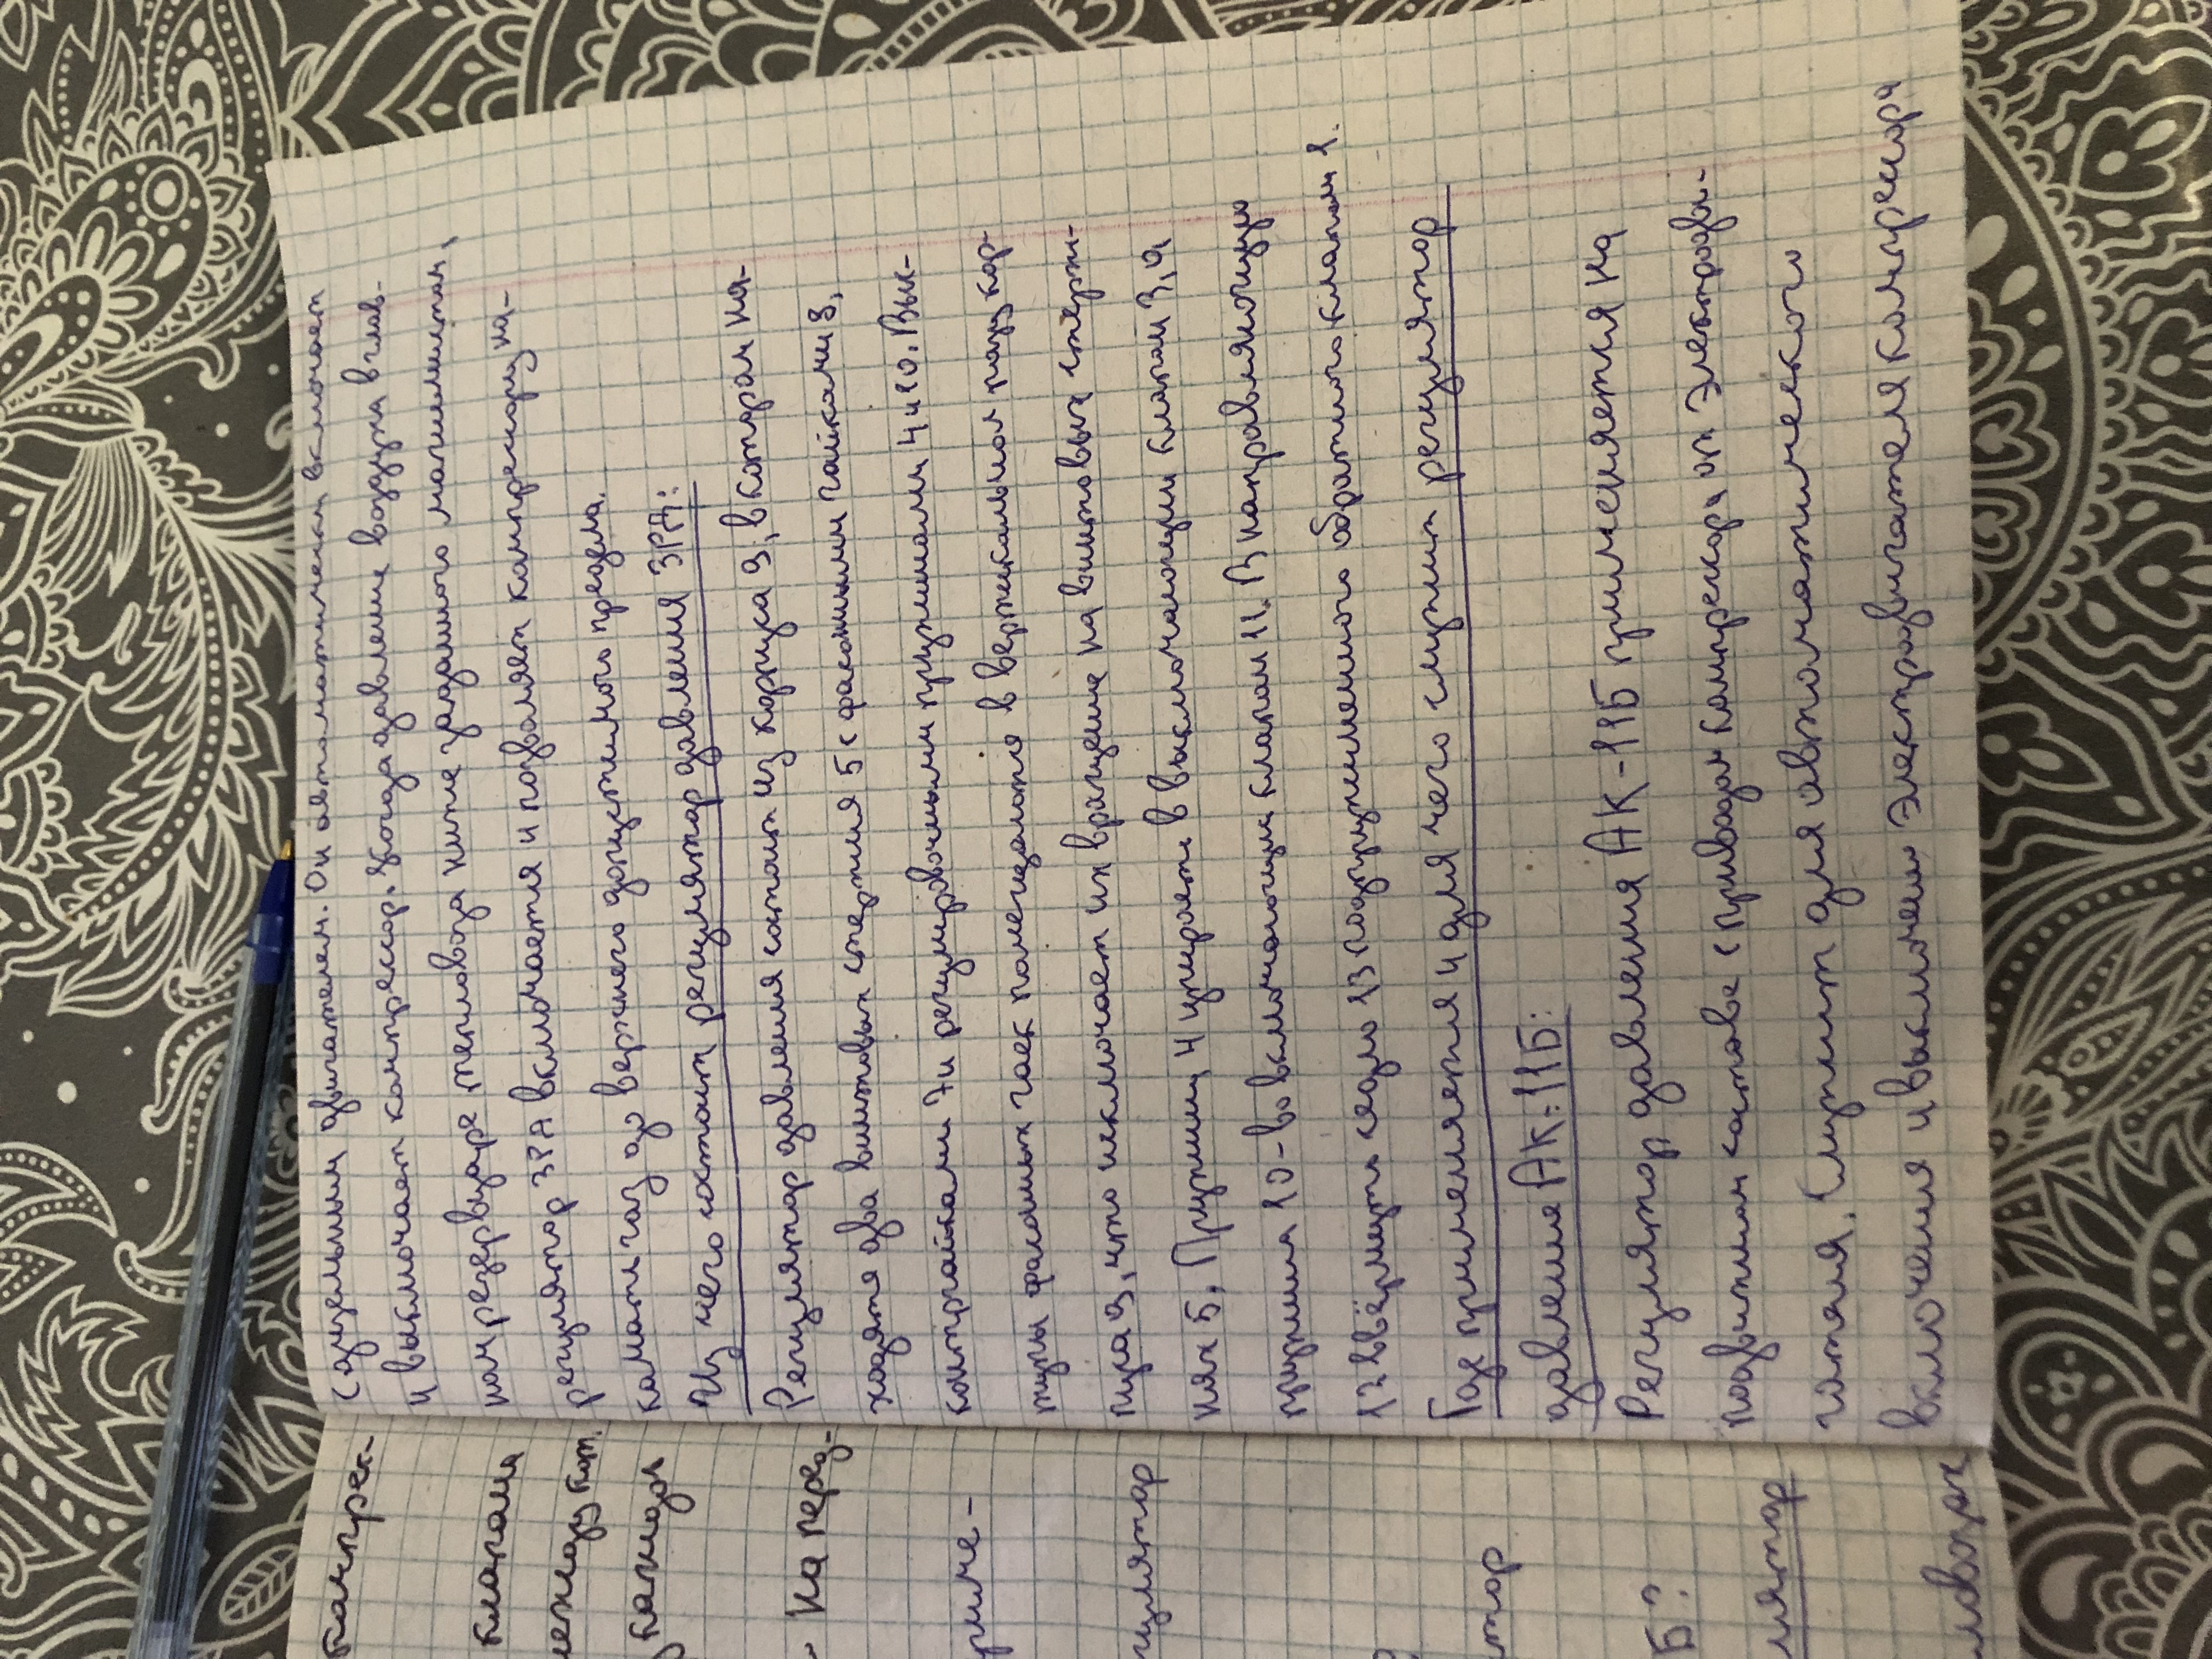 с дизельным двигателем. Он автоматически включает
и выключает компрессор. Когда давление воздуха в глав-
ном резервуаре тепловоза ниже заданного
регулятор ЗРД включается и позволяет компрессору на-
качать газ до верхнего допустимого предела.
Из чего состоит регулятор давления ЗРД:
Регулятор давления состоит из корпуса 9, в котором на-
ходятся два винтовых стержня 5 с фасонными гайками 8,
контргайками 7 и регулировочными пружинами 4 и 10. Выс-
тупы фасонных гаек помещаются в вертикальном пазу кор-
пуса 9, что исключает их вращение на винтовых стерж-
нях 5. Пружины 4 упирается в выключающий клапан 3, а
пружина 10 - во включающий клапан 11. В направляющую
12 ввёрнуто седло 13 подпружиненного обратного клапана 1.
Где применяется и для чего служит регулятор
давление АК-11Б:
Регулятор давления АК-11Б применяется на
подвижном составе с приводом компрессора от электродви-
гателя. Служит для автоматического
включения и выключения электродвигателя компрессора
компрес-
клапана
между
каждом
На перед-
риче-
гулятор
тор
Б?
лятор